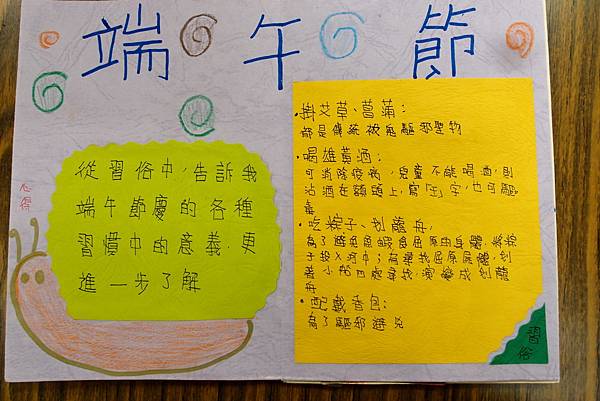 端午節
心得
從習俗中,告訴我
端午節慶的各種
習慣中的意義,更
進一步了解
·掛艾草、菖蒲:
都是傳統被鬼驅邪聖物
·喝雄黃酒:
可消除疫病,兒童不能喝酒,則
沾酒在額頭上,寫「王」字,也可驅
毒
·吃粽子、划龍舟:
為了避免魚蝦食屈原由身體,將粽
子投入河中;有尋找屈原屍體,划
著小船四處尋找,演變成划龍
舟
·配戴香包:
為了驅邪避兇
習俗